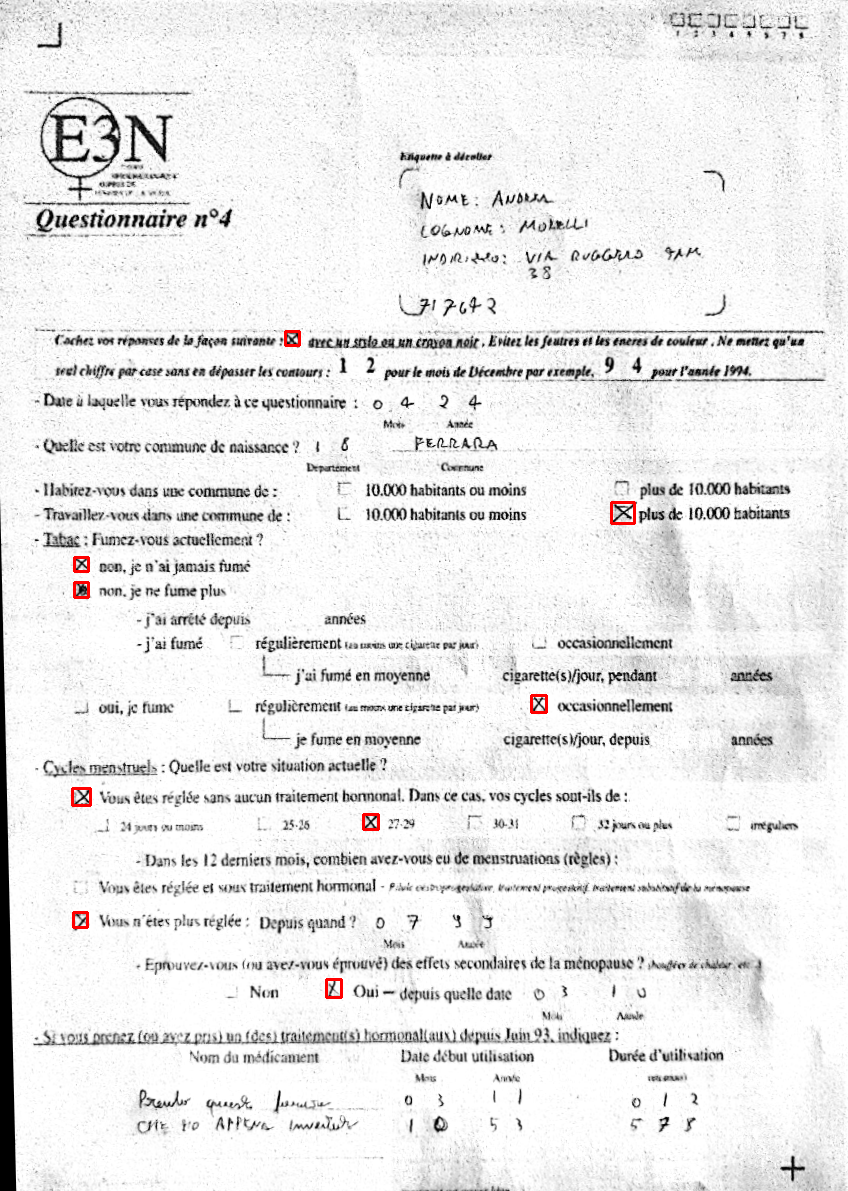 1 2 3 4 5 6 7 8
E3N
Questionnaire n°4
Etiquette à décoller
NOME: ANDREA
COGNOME: MORELLI
INDIRIZZO: VIA RUGGERO
38
717642
Cochez vos réponses de la façon suivante : avec un stylo ou un crayon noir. Evitez les feutres et les encres de couleur. Ne mettez qu'un
seul chiffre par case sans en dépasser les contours : 1 2 pour le mois de Décembre par exemple, 9 4 pour l'année 1994.
- Date à laquelle vous répondez à ce questionnaire : 0 4 2 4
Mois Année
- Quelle est votre commune de naissance ? 1 8 FERRARA
Département Commune
- Habitez-vous dans une commune de : 10.000 habitants ou moins plus de 10.000 habitants
- Travaillez-vous dans une commune de : 10.000 habitants ou moins plus de 10.000 habitants
- Tabac : Fumez-vous actuellement ?
non, je n'ai jamais fumé
non, je ne fume plus
- j'ai arrêté depuis années
- j'ai fumé régulièrement (au moins une cigarette par jour) occasionnellement
j'ai fumé en moyenne cigarette(s)/jour, pendant années
oui, je fume régulièrement (au moins une cigarette par jour) occasionnellement
je fume en moyenne cigarette(s)/jour, depuis années
- Cycles menstruels : Quelle est votre situation actuelle ?
Vous êtes réglée sans aucun traitement hormonal. Dans ce cas, vos cycles sont-ils de :
24 jours ou moins 25-26 27-29 30-31 32 jours ou plus irréguliers
- Dans les 12 derniers mois, combien avez-vous eu de menstruations (règles) :
Vous êtes réglée et sous traitement hormonal - Pilule oestroprogestative, traitement progestatif, traitement substitutif de la ménopause
Vous n'êtes plus réglée : Depuis quand ? 0 7 9 9
Mois Année
- Eprouvez-vous (ou avez-vous éprouvé) des effets secondaires de la ménopause ? (bouffées de chaleur, etc.)
Non Oui – depuis quelle date 0 3 1 0
Mois Année
- Si vous prenez (ou avez pris) un (des) traitement(s) hormonal(aux) depuis Juin 93, indiquez :
Nom du médicament Date début utilisation Durée d'utilisation
Mois Année
Prendo queste 0 3 1 1 0 1 2
CHE HO APPENA inventato 1 0 5 3 5 7 8